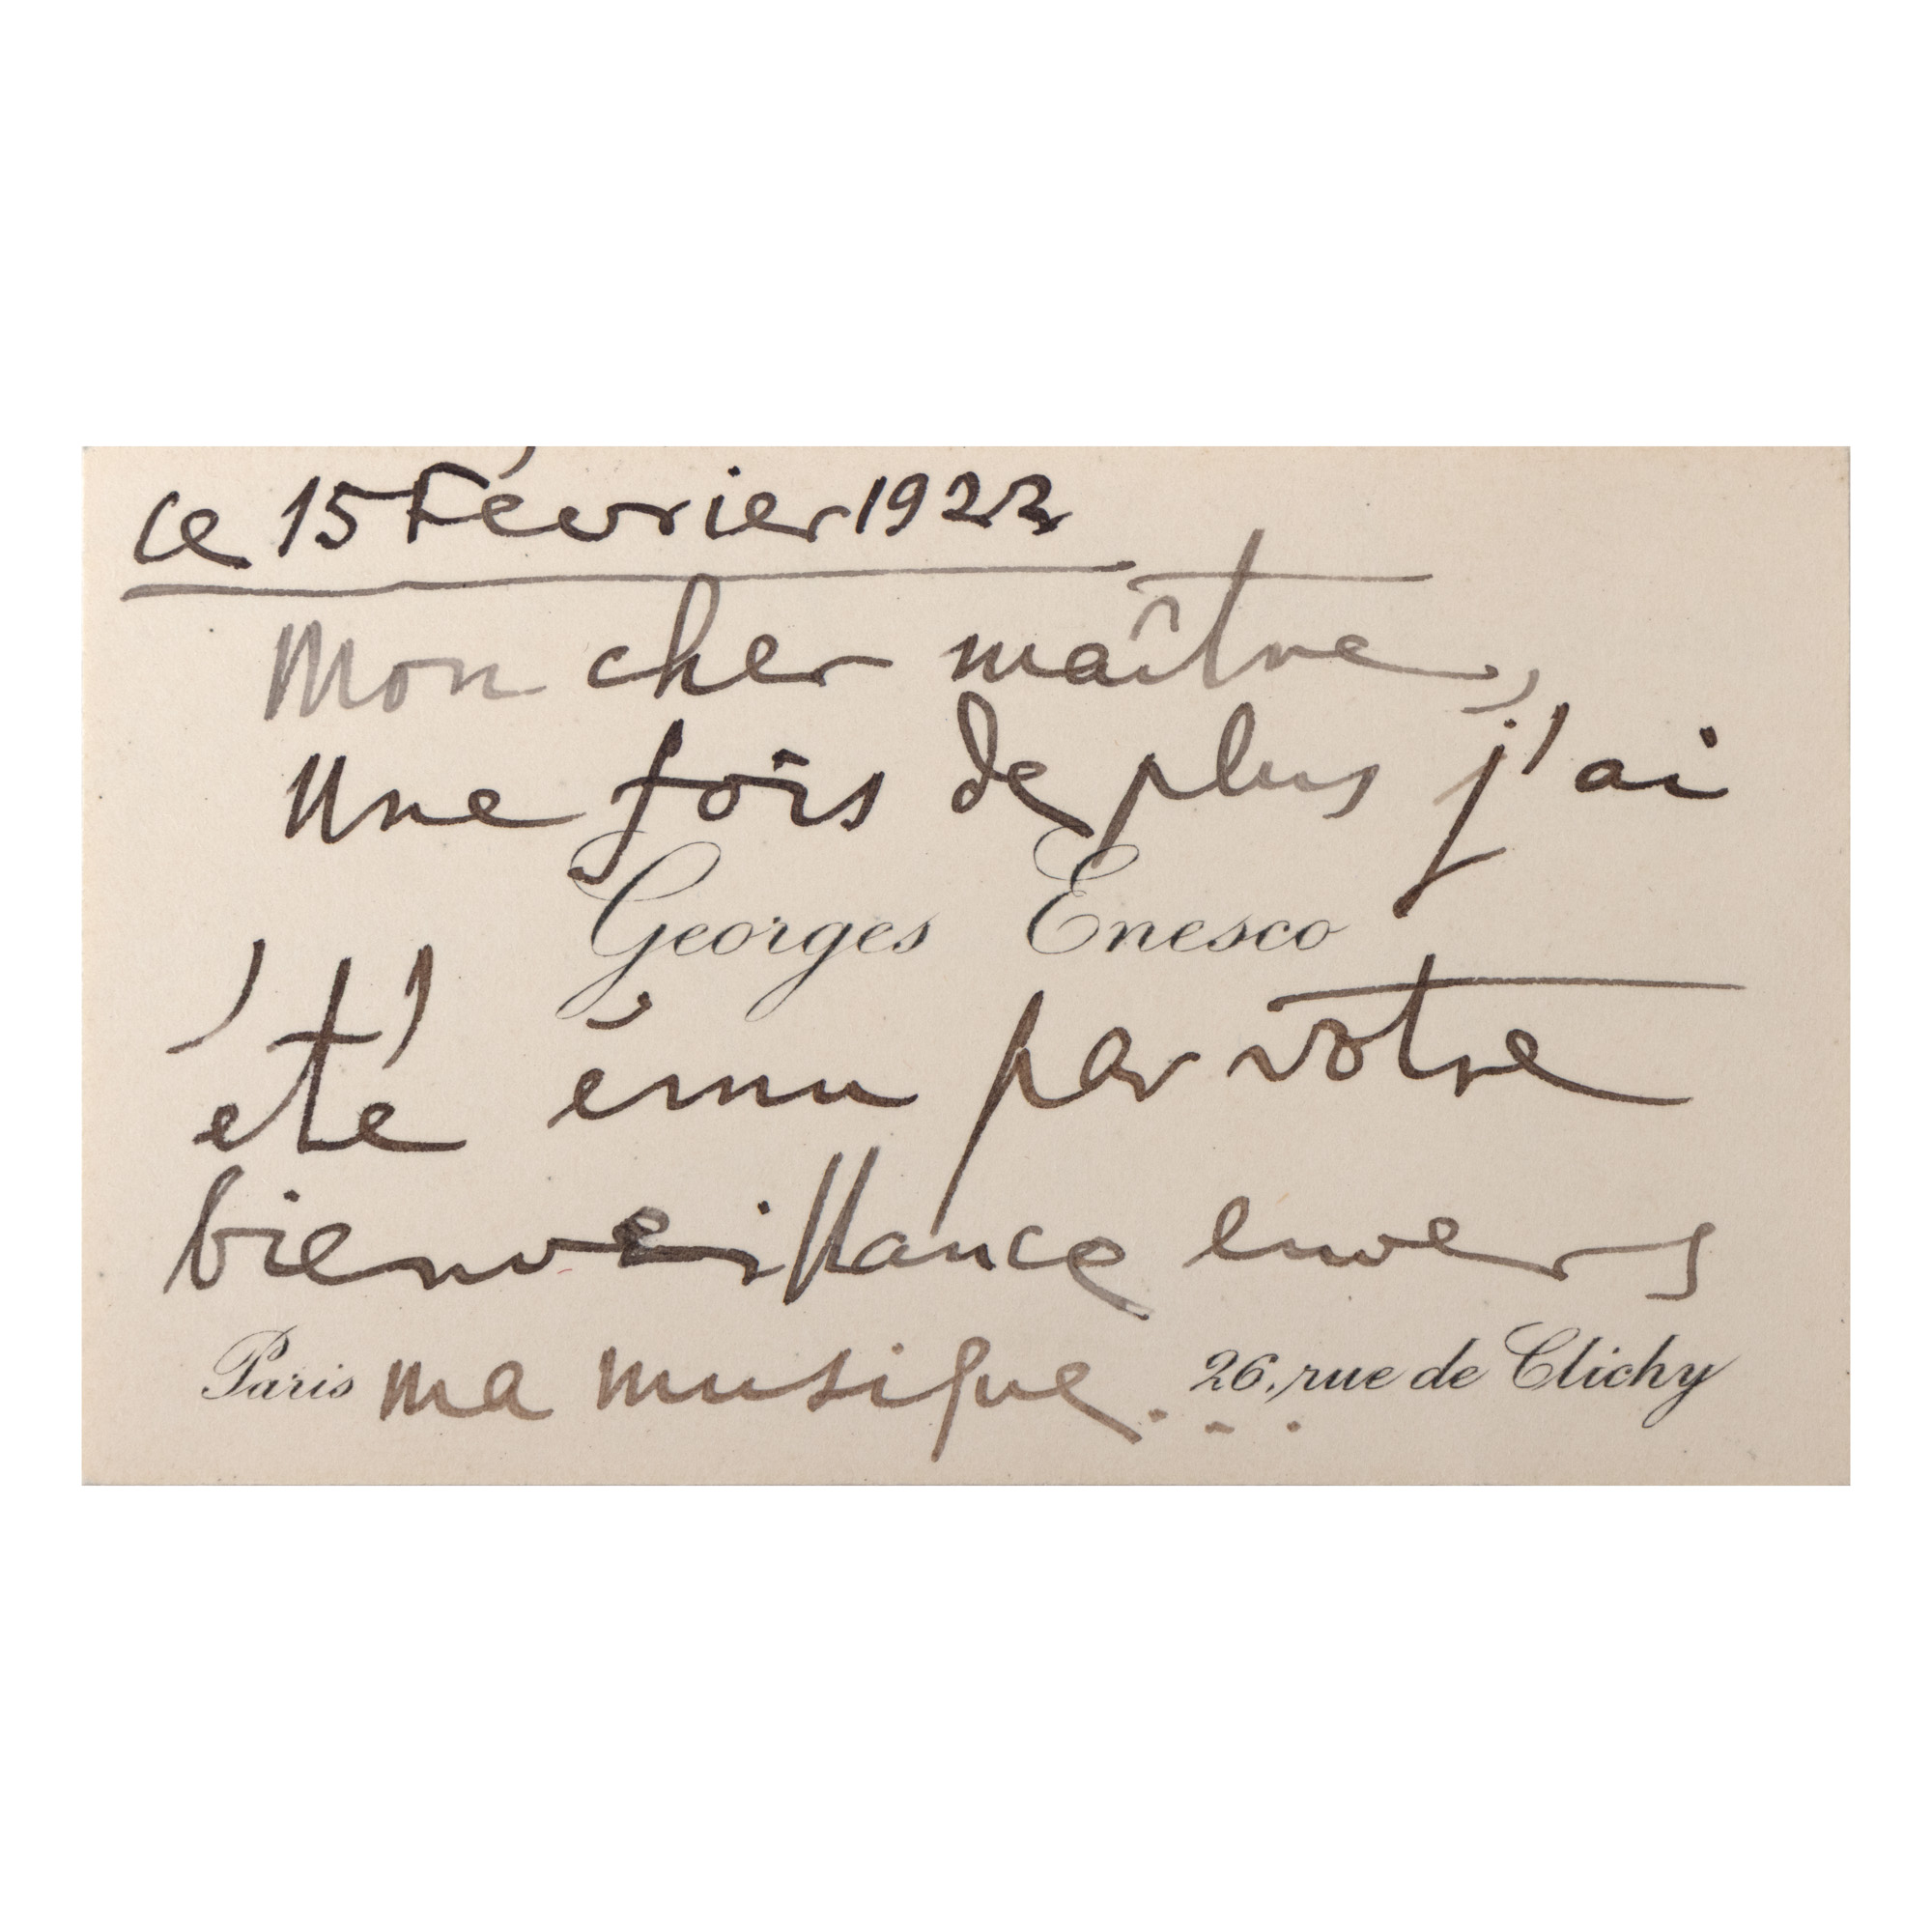 ce 15 Février 1922
Mon cher maître,
Une fois de plus j'ai
Georges Enesco
été ému par votre
bienveillance envers
Paris ma musique... 26, rue de Clichy